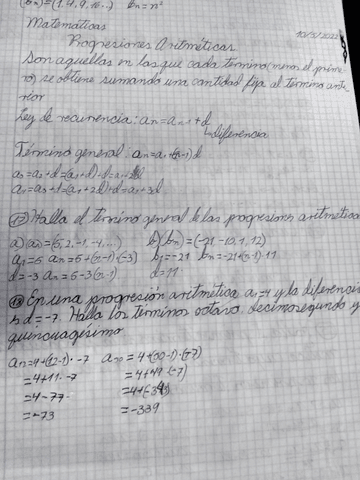 (bn)=(1,4,9,16...) bn=n²
Matemáticas
Progresiones Aritméticas
Son aquellas en las que cada término(menos el prime-
ro) se obtiene sumando una cantidad fija al término ante-
rior
Ley de recurrencia: an=an-1+d
diferencia
Término general: an=a1+(n-1)d
a3=a2+d=(a1+d)+d=a1+2d
a4=a3+d=(a1+2d)+d=a1+3d
Halla el término general de las progresiones aritmética
a)(an)=(5,2,-1,-4,...) b)(bn)=(-21,-10,1,12)
a1=5 an=5+(n-1)·(-3) b1=-21 bn=-21+(n-1)·11
d=-3 an=5-3(n-1) d=11
En una progresión aritmética a1=4 y la diferencia
es d=-7. Halla los términos octavo, decimosegundo y
quincuagésimo
a12=4+(12-1)·-7 a50=4+(50-1)·(-7)
=4+11·-7 =4+49·(-7)
=4-77 =4+(-343)
=-73 =-339